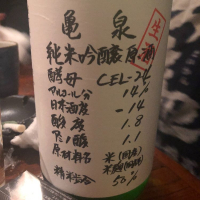 亀泉
純米吟醸原酒
生
酵母 CEL-24
アルコール分 14%
日本酒度 -14
酸度 1.8
アミノ酸 1.1
原材料名 米(国産)
米麹(国産米)
精米歩合 50%